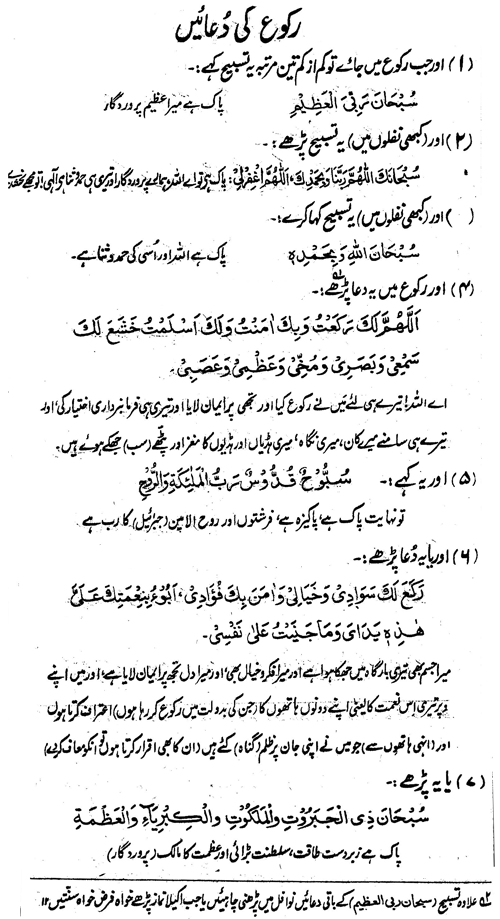 رکوع کی دُعائیں
(۱) اور جب رکوع میں جائے تو کم از کم تین مرتبہ یہ تسبیح کہے :-
سُبْحَانَ رَبِّیَ الْعَظِیْمِ پاک ہے میرا عظیم پروردگار
(۲) اور (کبھی نفلوں میں) یہ تسبیح پڑھے :-
سُبْحَانَكَ اللّٰهُمَّ رَبَّنَا وَبِحَمْدِكَ، اَللّٰهُمَّ اغْفِرْلِیْ: پاک ہے تو اے اللہ، ہمارے پروردگار اور تیری ہی حمد و ثنا ہے الٰہی! تو مجھے بخشدے
( ) اور (کبھی نفلوں میں) یہ تسبیح کہا کرے :-
سُبْحَانَ اللهِ وَبِحَمْدِهٖ پاک ہے اللہ اور اُسی کی حمد و ثنا ہے۔
(۴) اور رکوع میں یہ دعا پڑھے :-
اَللّٰهُمَّ لَكَ رَكَعْتُ وَبِكَ اٰمَنْتُ وَلَكَ اَسْلَمْتُ خَشَعَ لَكَ
سَمْعِیْ وَبَصَرِیْ وَمُخِّیْ وَعَظْمِیْ وَعَصَبِیْ۔
اے اللہ! تیرے ہی لئے میں نے رکوع کیا اور تجھی پر ایمان لایا اور تیری ہی فرمانبرداری اختیار کی، اور
تیرے ہی سامنے میرے کان، میری نگاہ، میری ہڈیاں اور ہڈیوں کا مغز اور پٹھے (سب) جھکے ہوئے ہیں۔
(۵) اور یہ کہے :- سُبُّوْحٌ قُدُّوْسٌ رَبُّ الْمَلٰٓئِكَةِ وَالرُّوْحِ
تو نہایت پاک ہے، پاکیزہ ہے، فرشتوں اور روح الامین (جبرئیل) کا رب ہے
(۶) اور یا یہ دُعا پڑھے :-
رَكَعَ لَكَ سَوَادِیْ وَخَیَالِیْ وَاٰمَنَ بِكَ فُؤَادِیْ، اَبُوْءُ بِنِعْمَتِكَ عَلَیَّ
هٰذِهٖ یَدَایَ وَمَا جَنَیْتُ عَلٰی نَفْسِیْ۔
میرا جسم بھی تیری بارگاہ میں جھکا ہوا ہے اور میرا فکر و خیال بھی، اور میرا دل تجھ پر ایمان لایا ہے، اور میں اپنے
وپر تیری اس نعمت کا یعنی اپنے دونوں ہاتھوں کا (جن کی بدولت میں رکوع کر رہا ہوں) اعتراف کرتا ہوں
اور (انہی ہاتھوں سے) جو میں نے اپنی جان پر ظلم (گناہ) کئے ہیں (ان کا بھی اقرار کرتا ہوں تو انکو معاف کردے)
(۷) یا یہ پڑھے :-
سُبْحَانَ ذِی الْجَبَرُوْتِ وَالْمَلَكُوْتِ وَالْكِبْرِیَآءِ وَالْعَظَمَةِ
پاک ہے زبردست طاقت، سلطنت بڑائی اور عظمت کا مالک (پروردگار)
علاوہ تسبیح (سبحان ربی العظیم) کے باقی دعائیں نوافل میں پڑھنی چاہئیں یا جب اکیلا نماز پڑھے خواہ فرض خواہ سنتیں ۱۲